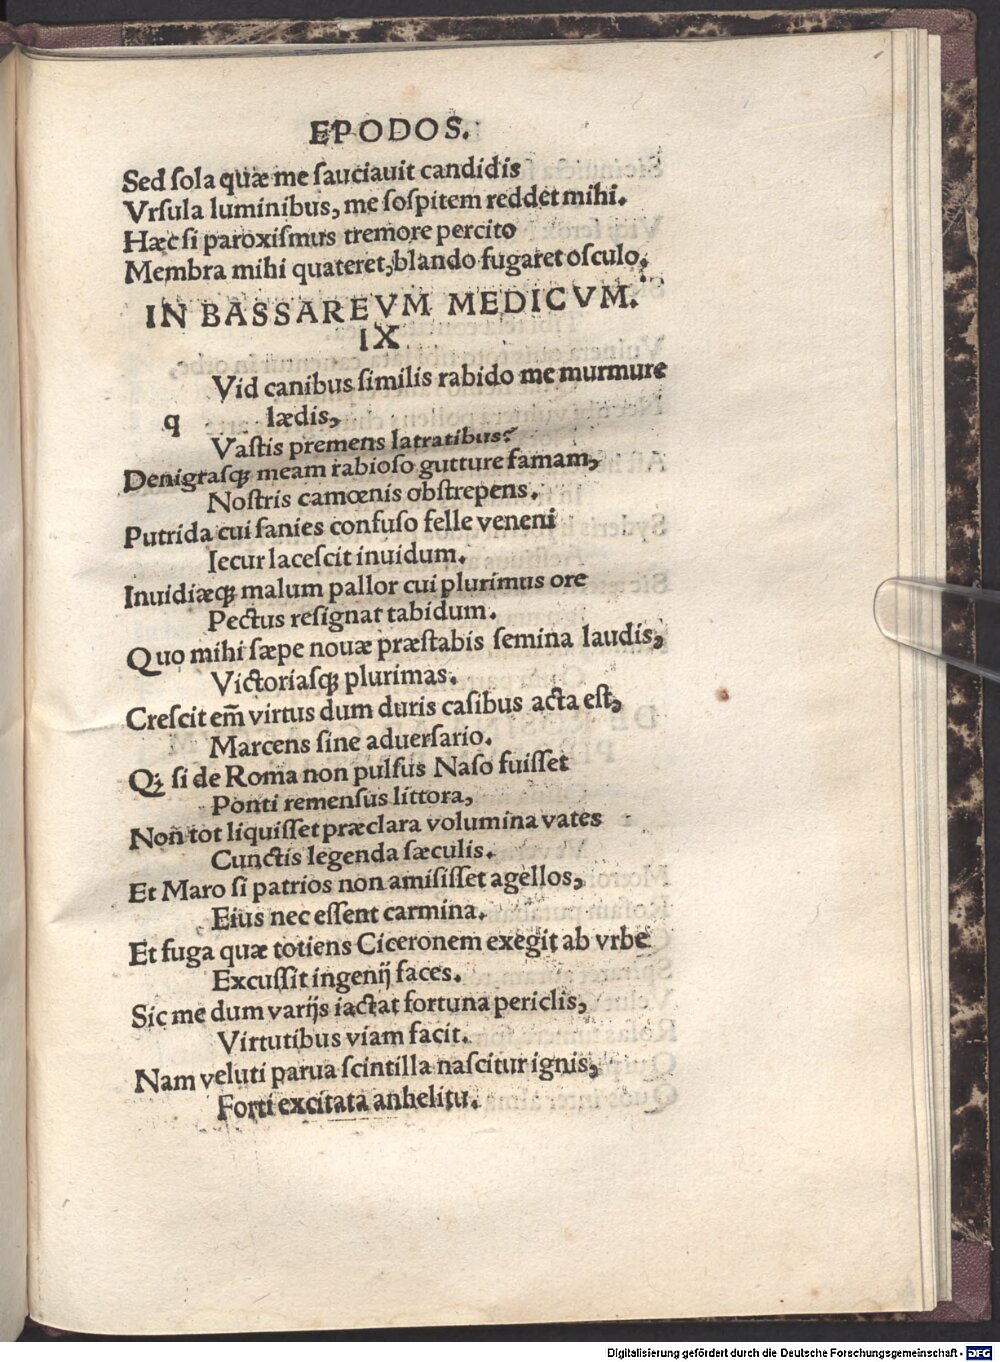 EPODOS.
Sed ſola quæ me ſauciauit candidis
Vrſula luminibus, me ſoſpitem reddet mihi.
Hæc ſi paroxiſmus tremore percito
Membra mihi quateret, blando fugaret oſculo.
IN BASSAREVM MEDICVM.
IX
Vid canibus ſimilis rabido me murmure
q lædis,
Vaſtis premens latratibus?
Denigraſqꝫ meam rabioſo gutture famam,
Noſtris camœnis obſtrepens.
Putrida cui ſanies confuſo felle veneni
Iecur laceſcit inuidum.
Inuidiæqꝫ malum pallor cui plurimus ore
Pectus reſignat tabidum.
Quo mihi ſæpe nouæ præſtabis ſemina laudis,
Victoriaſqꝫ plurimas.
Creſcit em̃ virtus dum duris caſibus acta eſt,
Marcens ſine aduerſario.
Qꝫ ſi de Roma non pulſus Naſo fuiſſet
Ponti remenſus littora,
Non tot liquiſſet præclara volumina vates
Cunctis legenda ſæculis.
Et Maro ſi patrios non amiſiſſet agellos,
Eius nec eſſent carmina.
Et fuga quæ totiens Ciceronem exegit ab vrbe
Excuſſit ingenij faces.
Sic me dum varijs iactat fortuna periclis,
Virtutibus viam facit.
Nam veluti parua ſcintilla naſcitur ignis,
Forti excitata anhelitu.
Digitalisierung gefördert durch die Deutsche Forschungsgemeinschaft - DFG